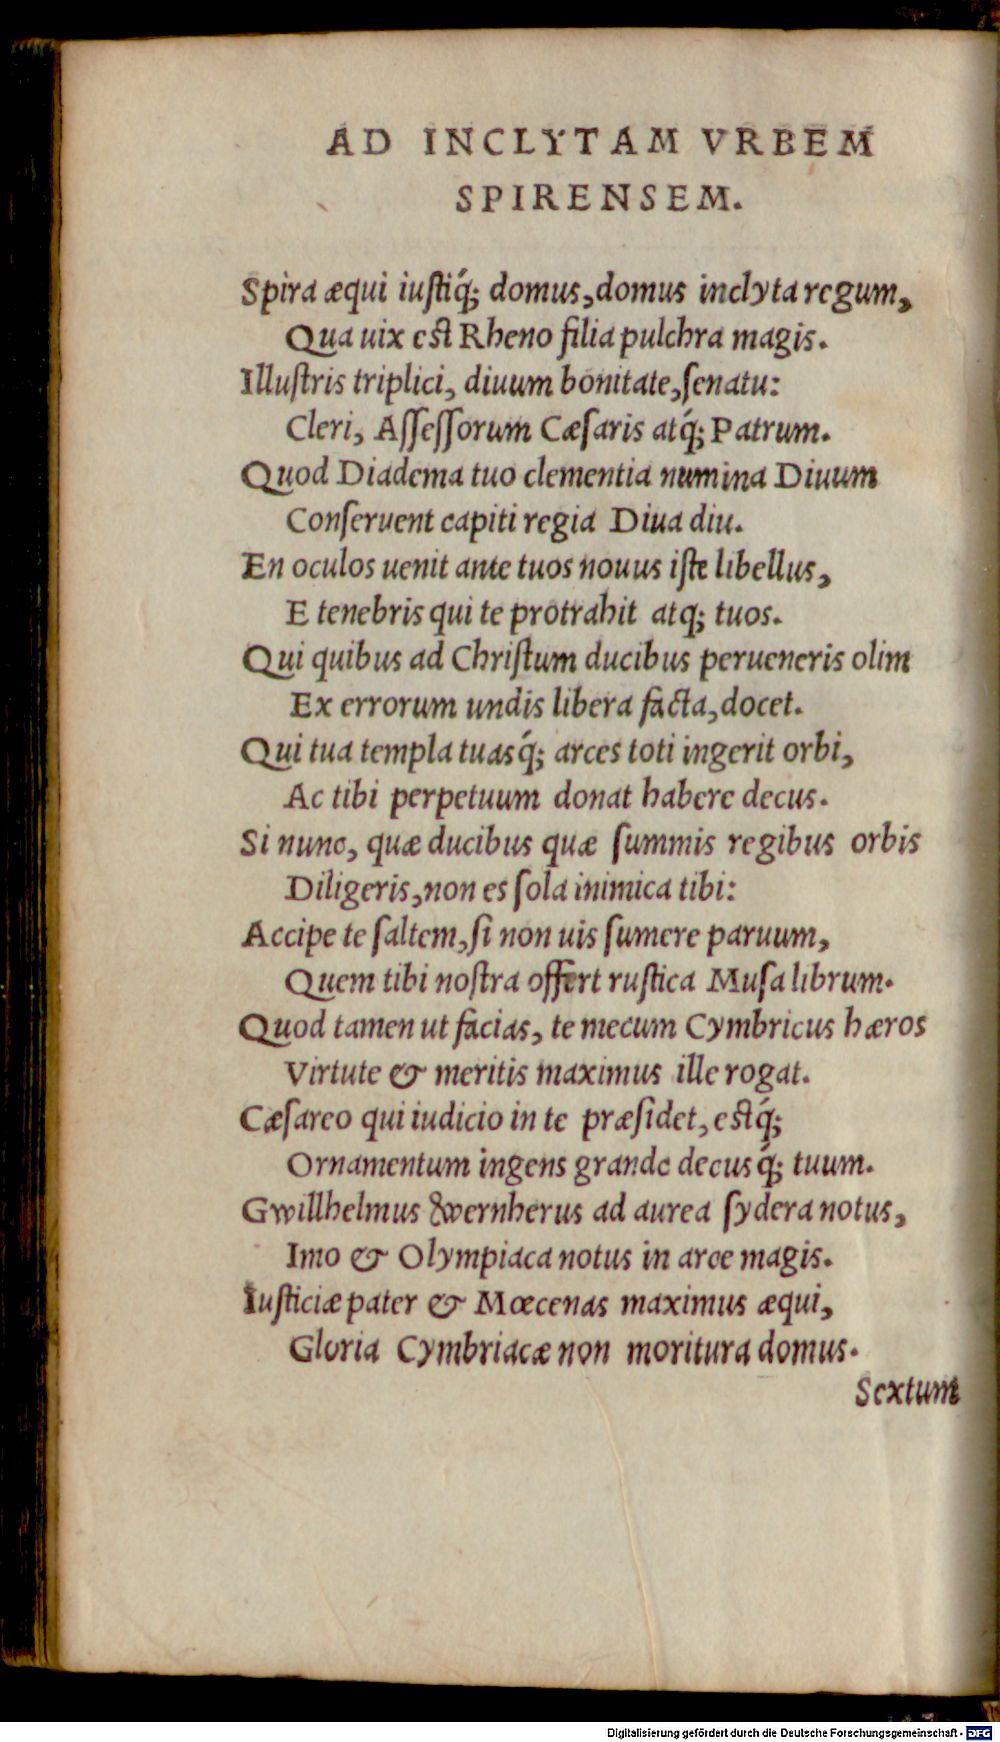 AD INCLYTAM VRBEM
SPIRENSEM.
Spira æqui iuſtiq́; domus, domus inclyta regum,
Qua uix eſt Rheno filia pulchra magis.
Illuſtris triplici, diuum bonitate, ſenatu:
Cleri, Aſſeſſorum Cæſaris atq́; Patrum.
Quod Diadema tuo clementia numina Diuum
Conſeruent capiti regia Diua diu.
En oculos uenit ante tuos nouus iſte libellus,
E tenebris qui te protrahit atq; tuos.
Qui quibus ad Chriſtum ducibus perueneris olim
Ex errorum undis libera facta, docet.
Qui tua templa tuasq́; arces toti ingerit orbi,
Ac tibi perpetuum donat habere decus.
Si nunc, quæ ducibus quæ ſummis regibus orbis
Diligeris, non es ſola inimica tibi:
Accipe te ſaltem, ſi non uis ſumere paruum,
Quem tibi noſtra offert ruſtica Muſa librum.
Quod tamen ut facias, te mecum Cymbricus hæros
Virtute & meritis maximus ille rogat.
Cæſareo qui iudicio in te præſidet, eſtq́;
Ornamentum ingens grande decusq́; tuum.
Gwillhelmus Wernherus ad aurea ſydera notus,
Imo & Olympiaca notus in arce magis.
Iuſticiæ pater & Mœcenas maximus æqui,
Gloria Cymbriacæ non moritura domus.
Sextum
Digitalisierung gefördert durch die Deutsche Forschungsgemeinschaft - DFG